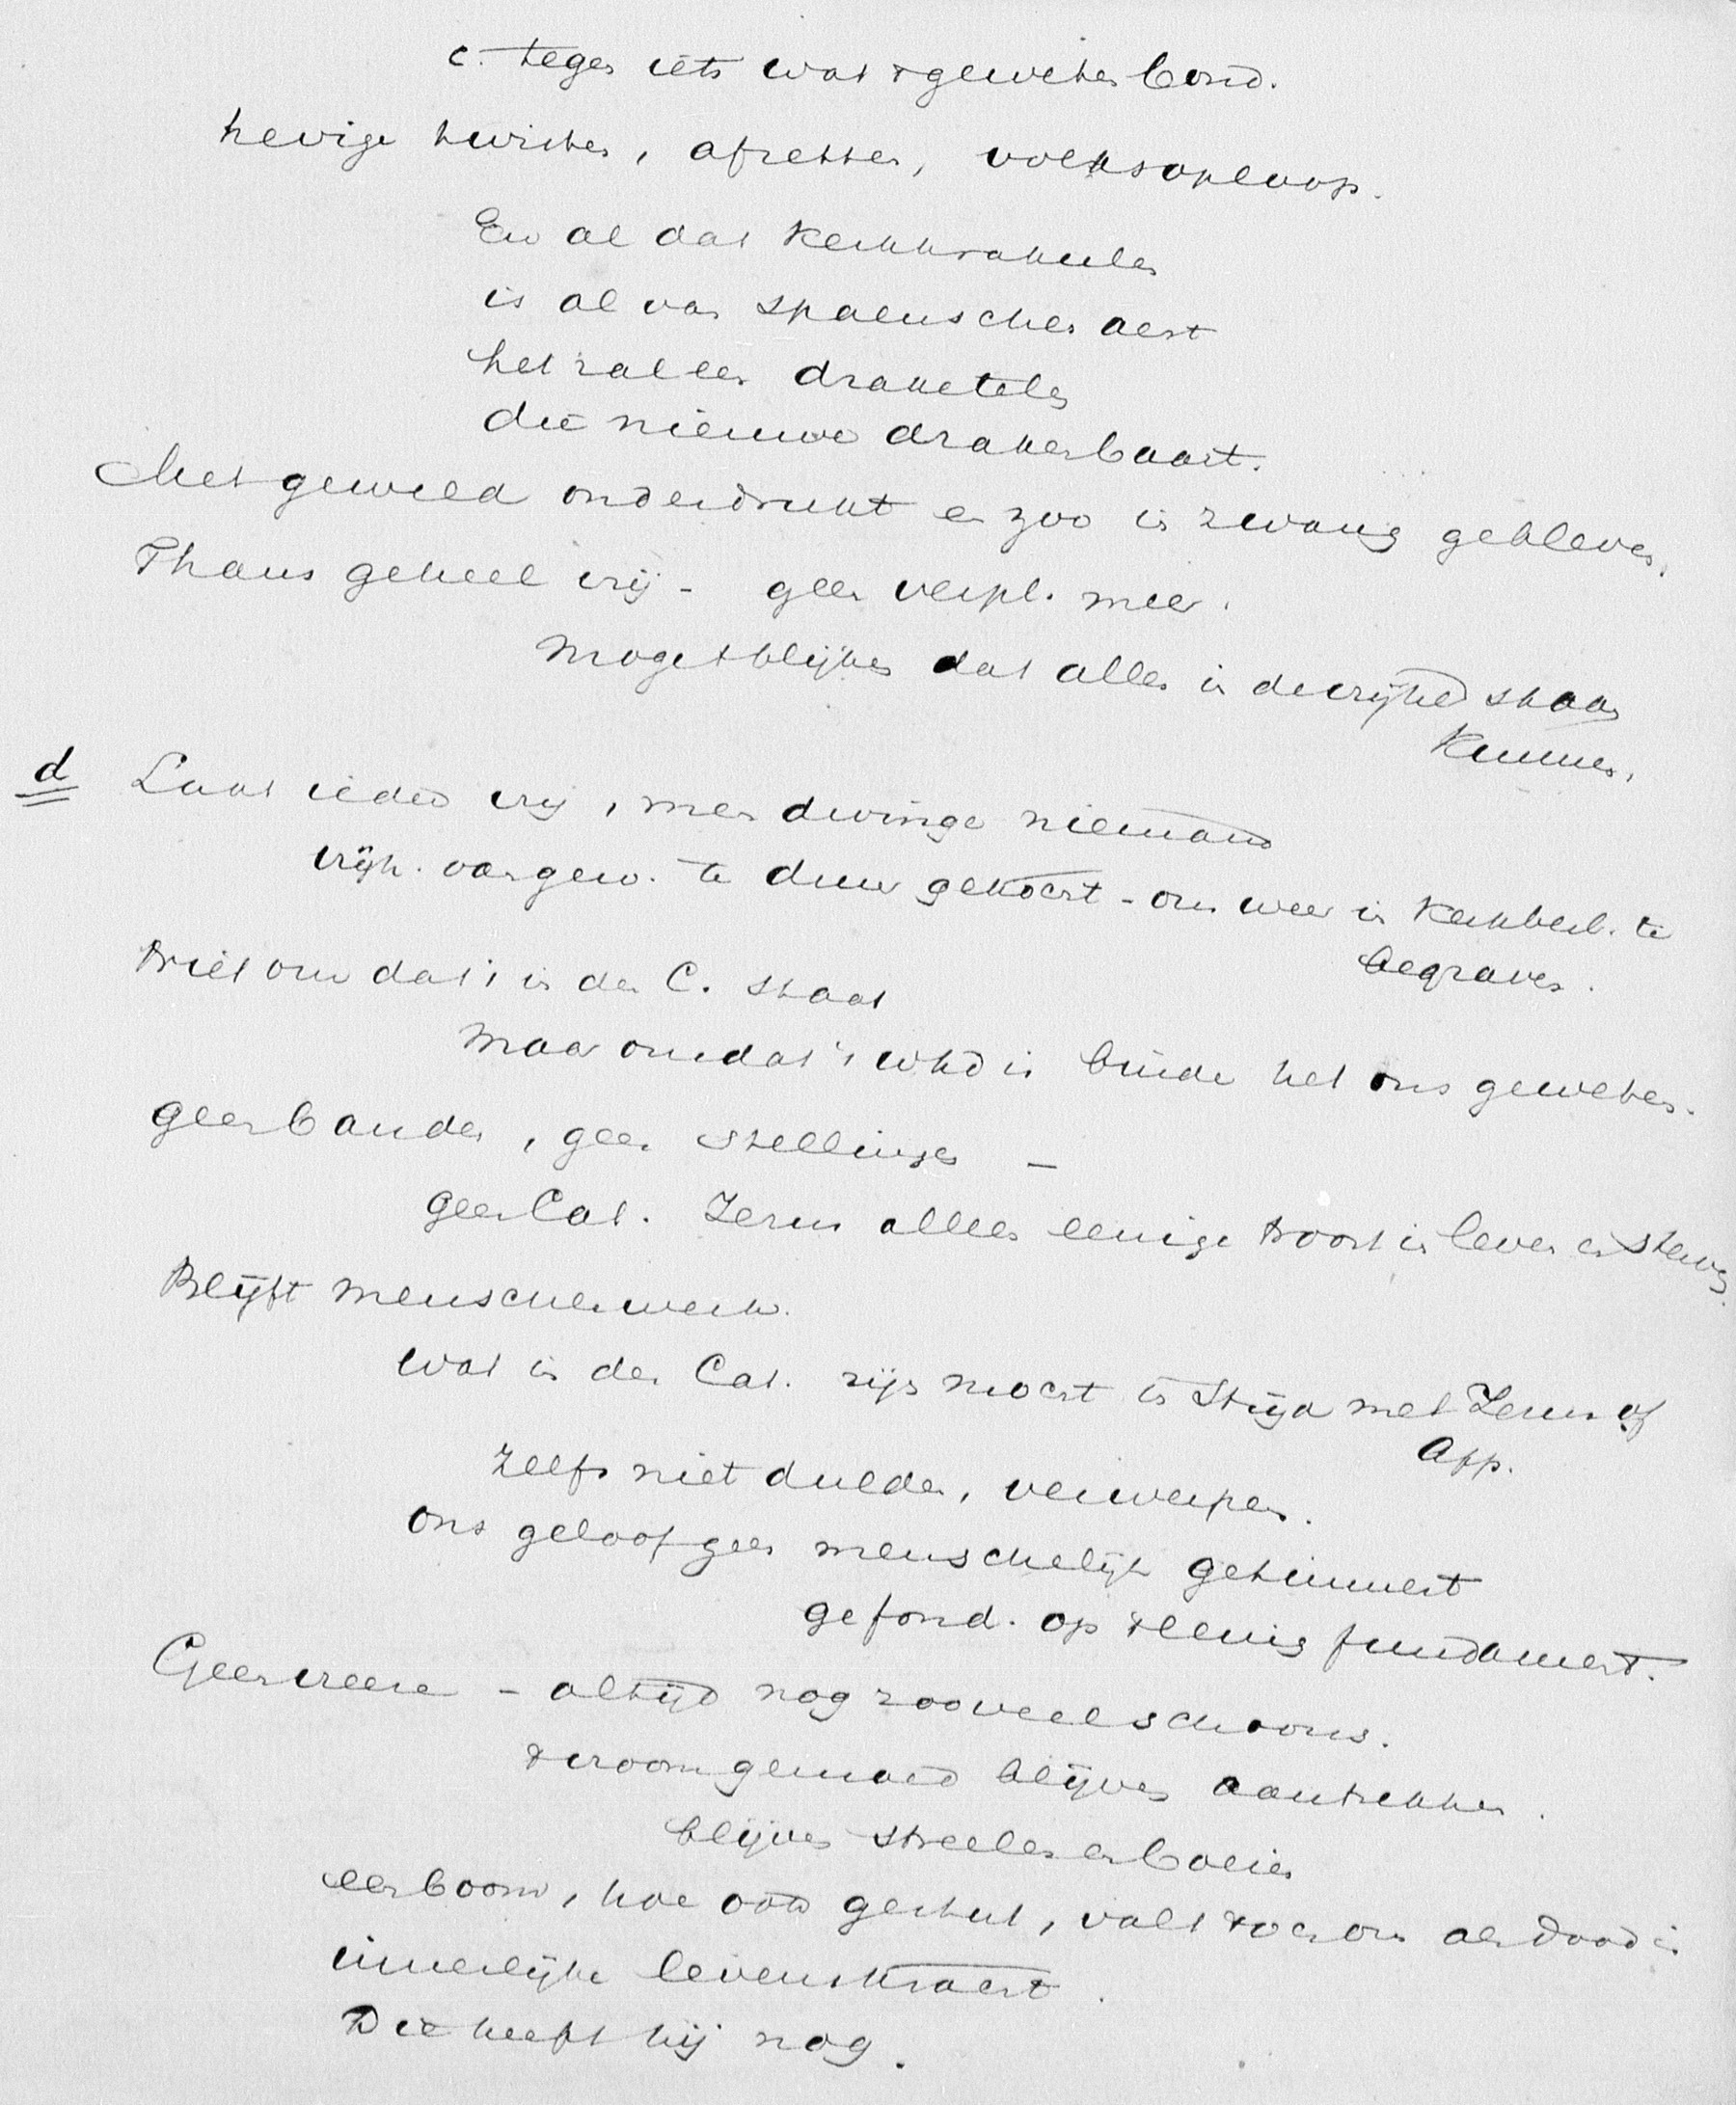 c. tegen iets wat 't geweten bond.
hevige twisten, afzetten, volksoploop.
En al dat kerkkrakeelen
is al van Spaenschen aert
het zallen draketelen
die nieuwe drakenbaart.
Met geweld onderdrukt en zoo in zwang gebleven.
Thans geheel vrij - geen verpl. meer.
Moge 't blijken dat allen in de vrijheid staan
kunnen.
d Laat ieder vrij, men dwinge niemand
vrijh. van gew. te duur gekocht - om weer in kerkverb. te
begraven.
Niet omdat 't in den C. staat
Maar omdat 't whd is binde het ons geweten.
geen banden, geen stellingen -
geen Cat. Jezus alleen eenige troost in leven en sterven.
Blijft menschenwerk.
Wat in den Cat. zijn mocht in strijd met Jezus of
App.
zelfs niet dulden, verwerpen.
ons geloof geen menschelijk getimmert
gefond. op 't eenig fundament.
Geen vreeze - altijd nog zooveel schoons.
't vroom gemoed blijven aantrekken.
blijven streelen en boeien
een boom, hoe ook gestut, valt toch om als dood is
innerlijke levenskracht.
Die heeft hij nog.